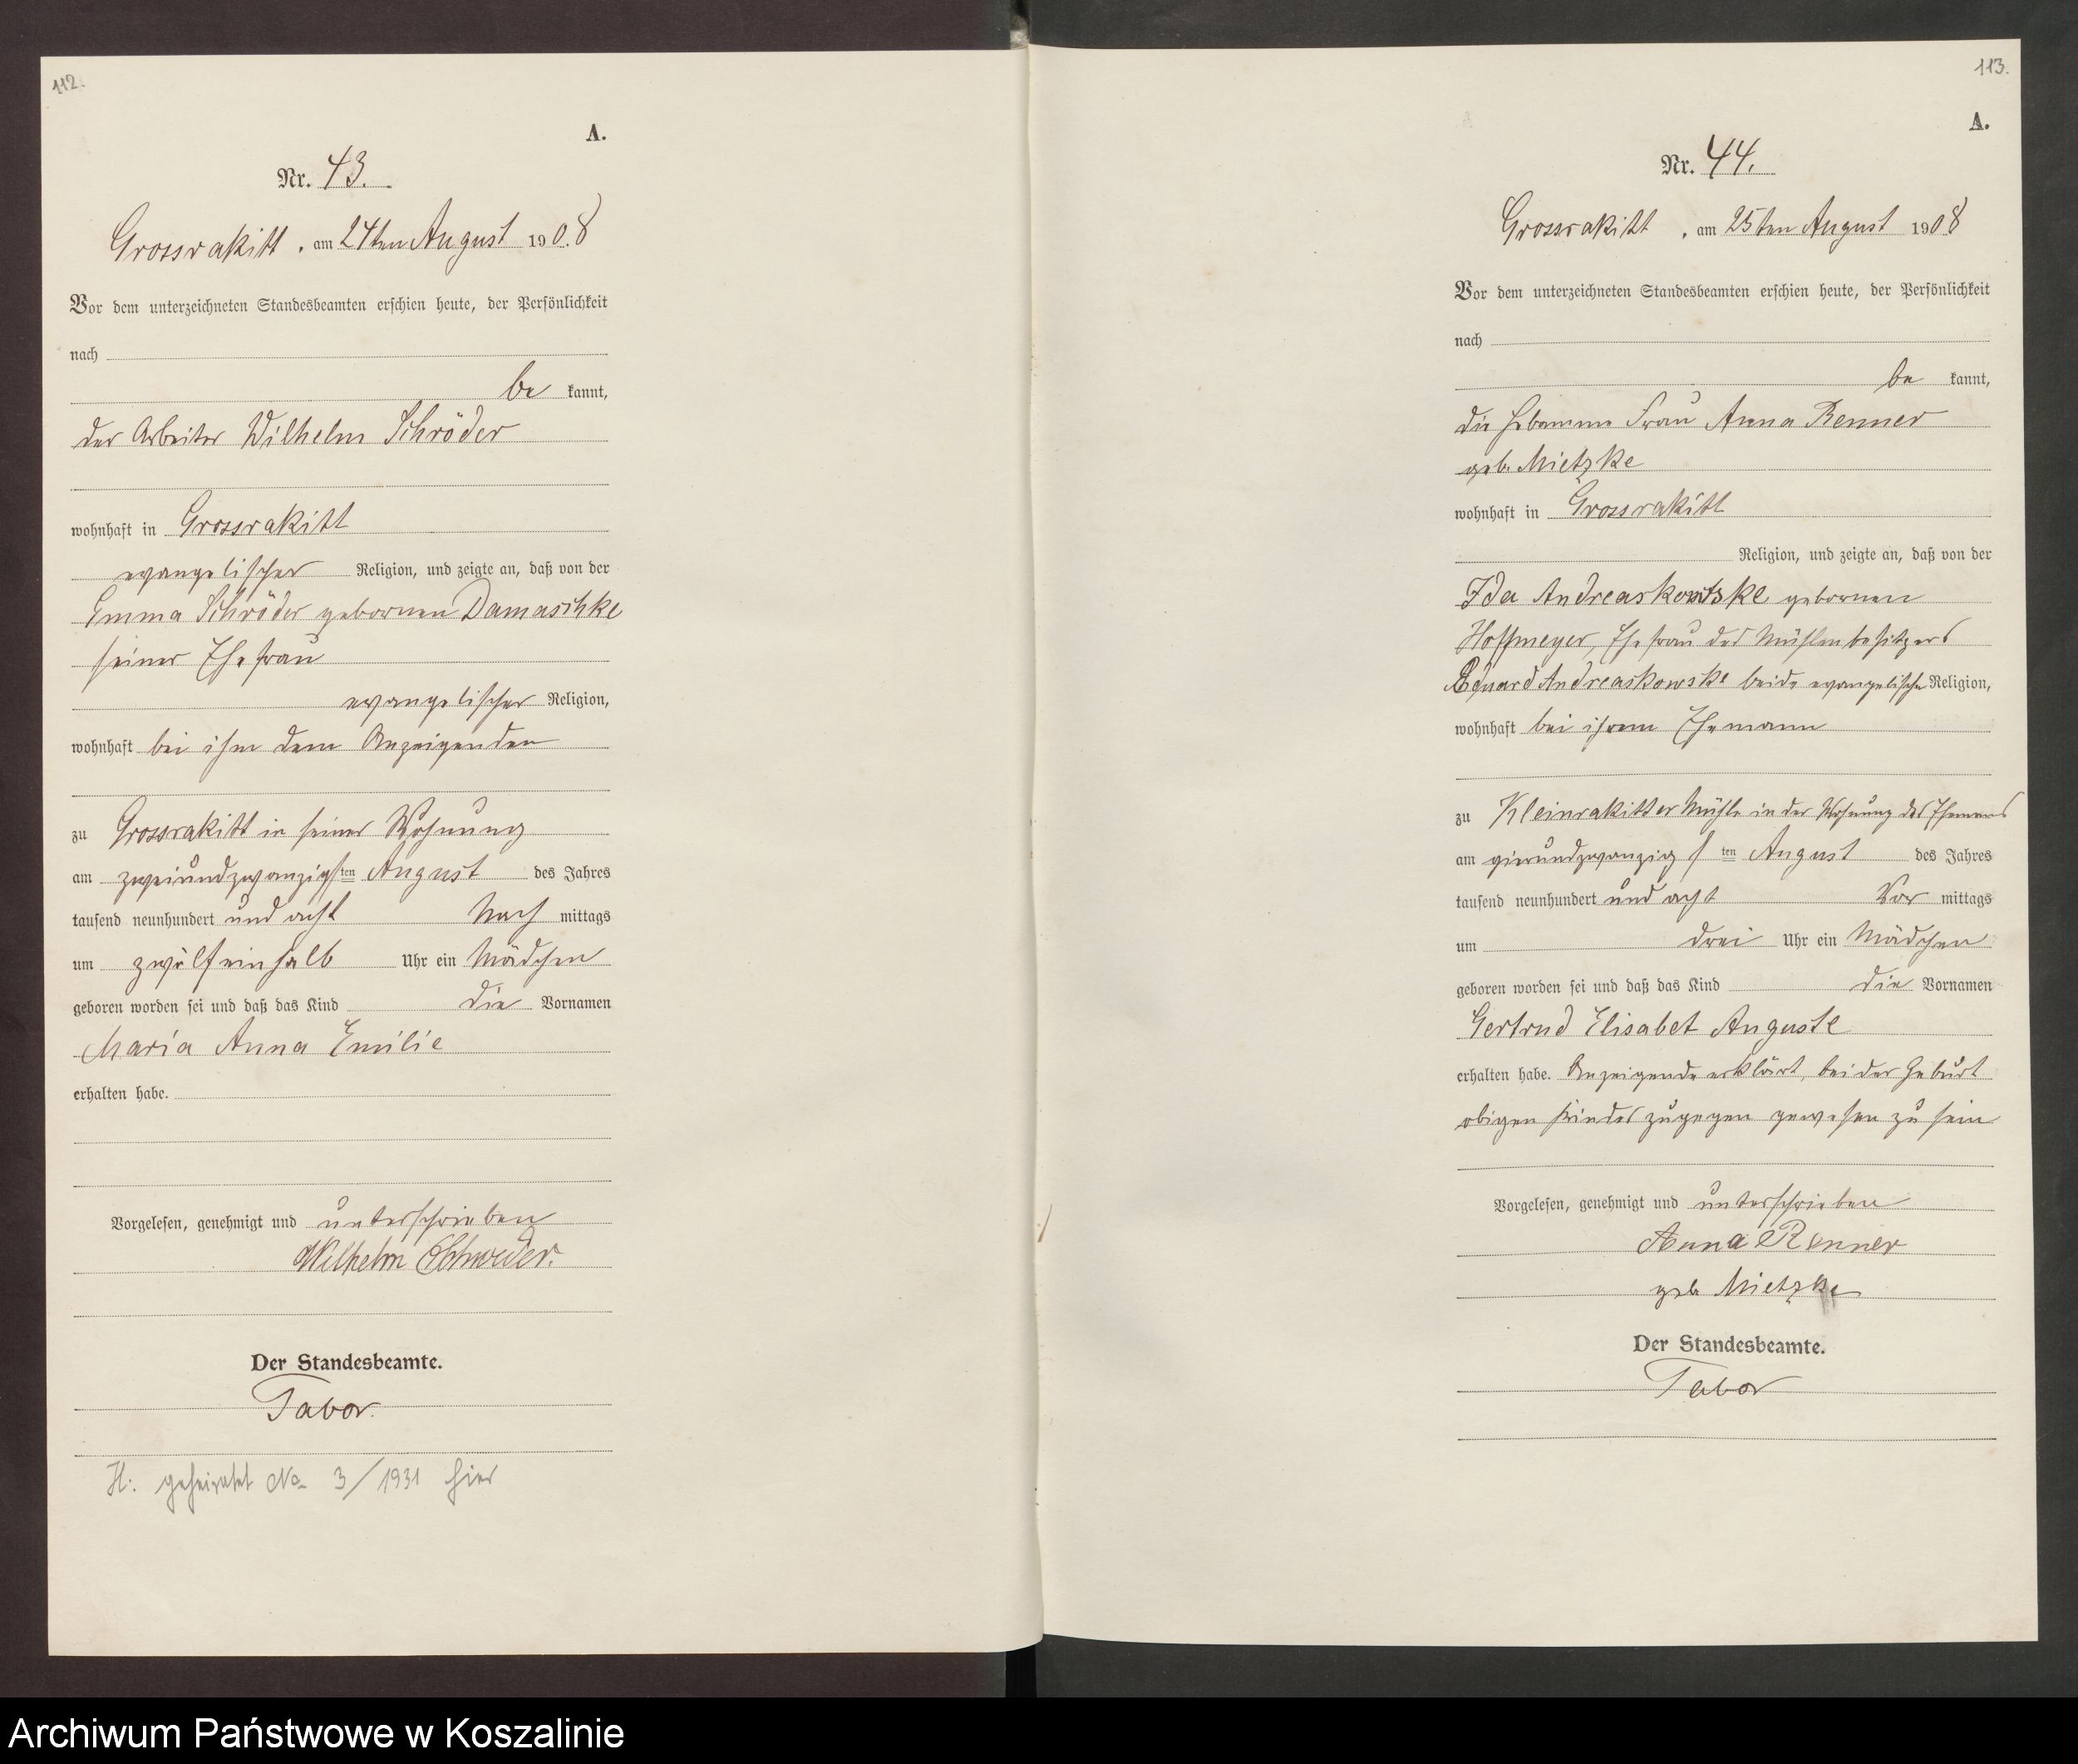 112.
A.
Nr. 43.
Grossrakitt, am 24ten August 1908
Vor dem unterzeichneten Standesbeamten erschien heute, der Persönlichkeit
nach
be kannt,
der Arbeiter Wilhelm Schröder
wohnhaft in Grossrakitt
evangelischer Religion, und zeigte an, daß von der
Emma Schröder gebornen Damaschke
seiner Ehefrau
evangelischer Religion,
wohnhaft bei ihm dem Anzeigenden
zu Grossrakitt in seiner Wohnung
am zweiundzwanzigsten August des Jahres
tausend neunhundert und acht Nach mittags
um zwölfeinhalb Uhr ein Mädchen
geboren worden sei und daß das Kind die Vornamen
Maria Anna Emilie
erhalten habe.
Vorgelesen, genehmigt und unterschrieben
Wilhelm Schröder.
Der Standesbeamte.
Tabor.
H: geheiratet No 3/1931 hier
113.
A.
Nr. 44.
Grossrakitt, am 25ten August 1908
Vor dem unterzeichneten Standesbeamten erschien heute, der Persönlichkeit
nach
be kannt,
die Hebamme Frau Anna Renner
geb. Mietzke
wohnhaft in Grossrakitt
Religion, und zeigte an, daß von der
Ida Andreaskowske gebornen
Hoffmeyer, Ehefrau des Mühlenbesitzers
Eduard Andreaskowske beide evangelische Religion,
wohnhaft bei ihrem Ehemann
zu Kleinrakitter Mühle in der Wohnung des Ehemanns
am vierundzwanzigsten August des Jahres
tausend neunhundert und acht Vor mittags
um drei Uhr ein Mädchen
geboren worden sei und daß das Kind die Vornamen
Gertrud Elisabet Auguste
erhalten habe. Anzeigende erklärt, bei der Geburt
obigen Kindes zugegen gewesen zu sein
Vorgelesen, genehmigt und unterschrieben
Anna Renner
geb Mietzke
Der Standesbeamte.
Tabor
Archiwum Państwowe w Koszalinie